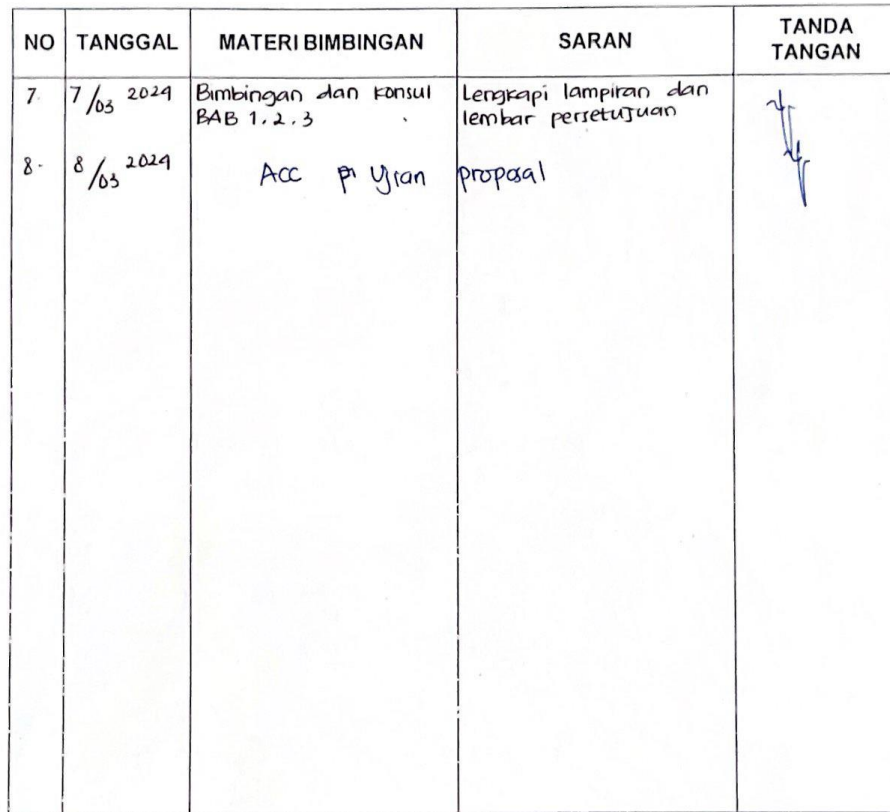 NO TANGGAL MATERI BIMBINGAN SARAN TANDA TANGAN
7. 7/03 2024 Bimbingan dan konsul Lengkapi lampiran dan
BAB 1.2.3 lembar persetujuan
8. 8/03 2024 Acc Ujian proposal